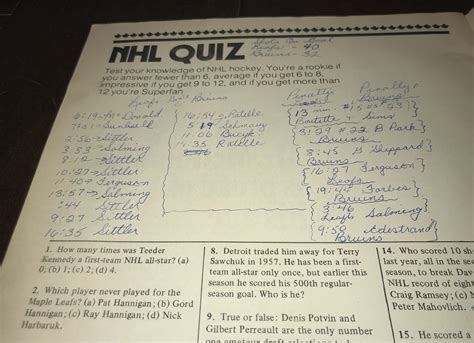 Shots On Goal
Leafs - 40
Bruins - 32
NHL QUIZ
Test your knowledge of NHL hockey. You're a rookie if
you answer fewer than 6, average if you get 6 to 8,
impressive if you get 9 to 12, and if you get more than
12 you're Superfan.
Leafs
Bruins
Penalty
Penalty
Bruins
Donald
16:54 Ratelle
13 min #5 #23
Ratelle & Sims
5:19
11:06 Bucyk
14:35 Ratelle
3:29 #22 B Park
Bruins
Sittler
3:53 - Salming
8:12 Sittler
Sittler
8:45 G Sheppard
Bruins
16:27 Ferguson
Leafs
11:40 Ferguson
13:57 Salming
:44 Sittler
9:27 Sittler
16:35 Sittler
19:44 Forbes
Bruins
3:46
Leafs Salming
9:59 Edestrand
Bruins
1. How many times was Teeder
Kennedy a first-team NHL all-star? (a)
0; (b) 1; (c) 2; (d) 4.
2. Which player never played for the
Maple Leafs? (a) Pat Hannigan; (b) Gord
Hannigan; (c) Ray Hannigan; (d) Nick
Harbaruk.
8. Detroit traded him away for Terry
Sawchuk in 1957. He has been a first-
team all-star only once, but earlier this
season he scored his 500th regular-
season goal. Who is he?
9. True or false: Denis Potvin and
Gilbert Perreault are the only number
one amateur draft selections to
14. Who scored 10 sh
last year, all in the se
season, to break Da
NHL record of eigh
Craig Ramsey; (c)
Peter Mahovlich.
15. How many of